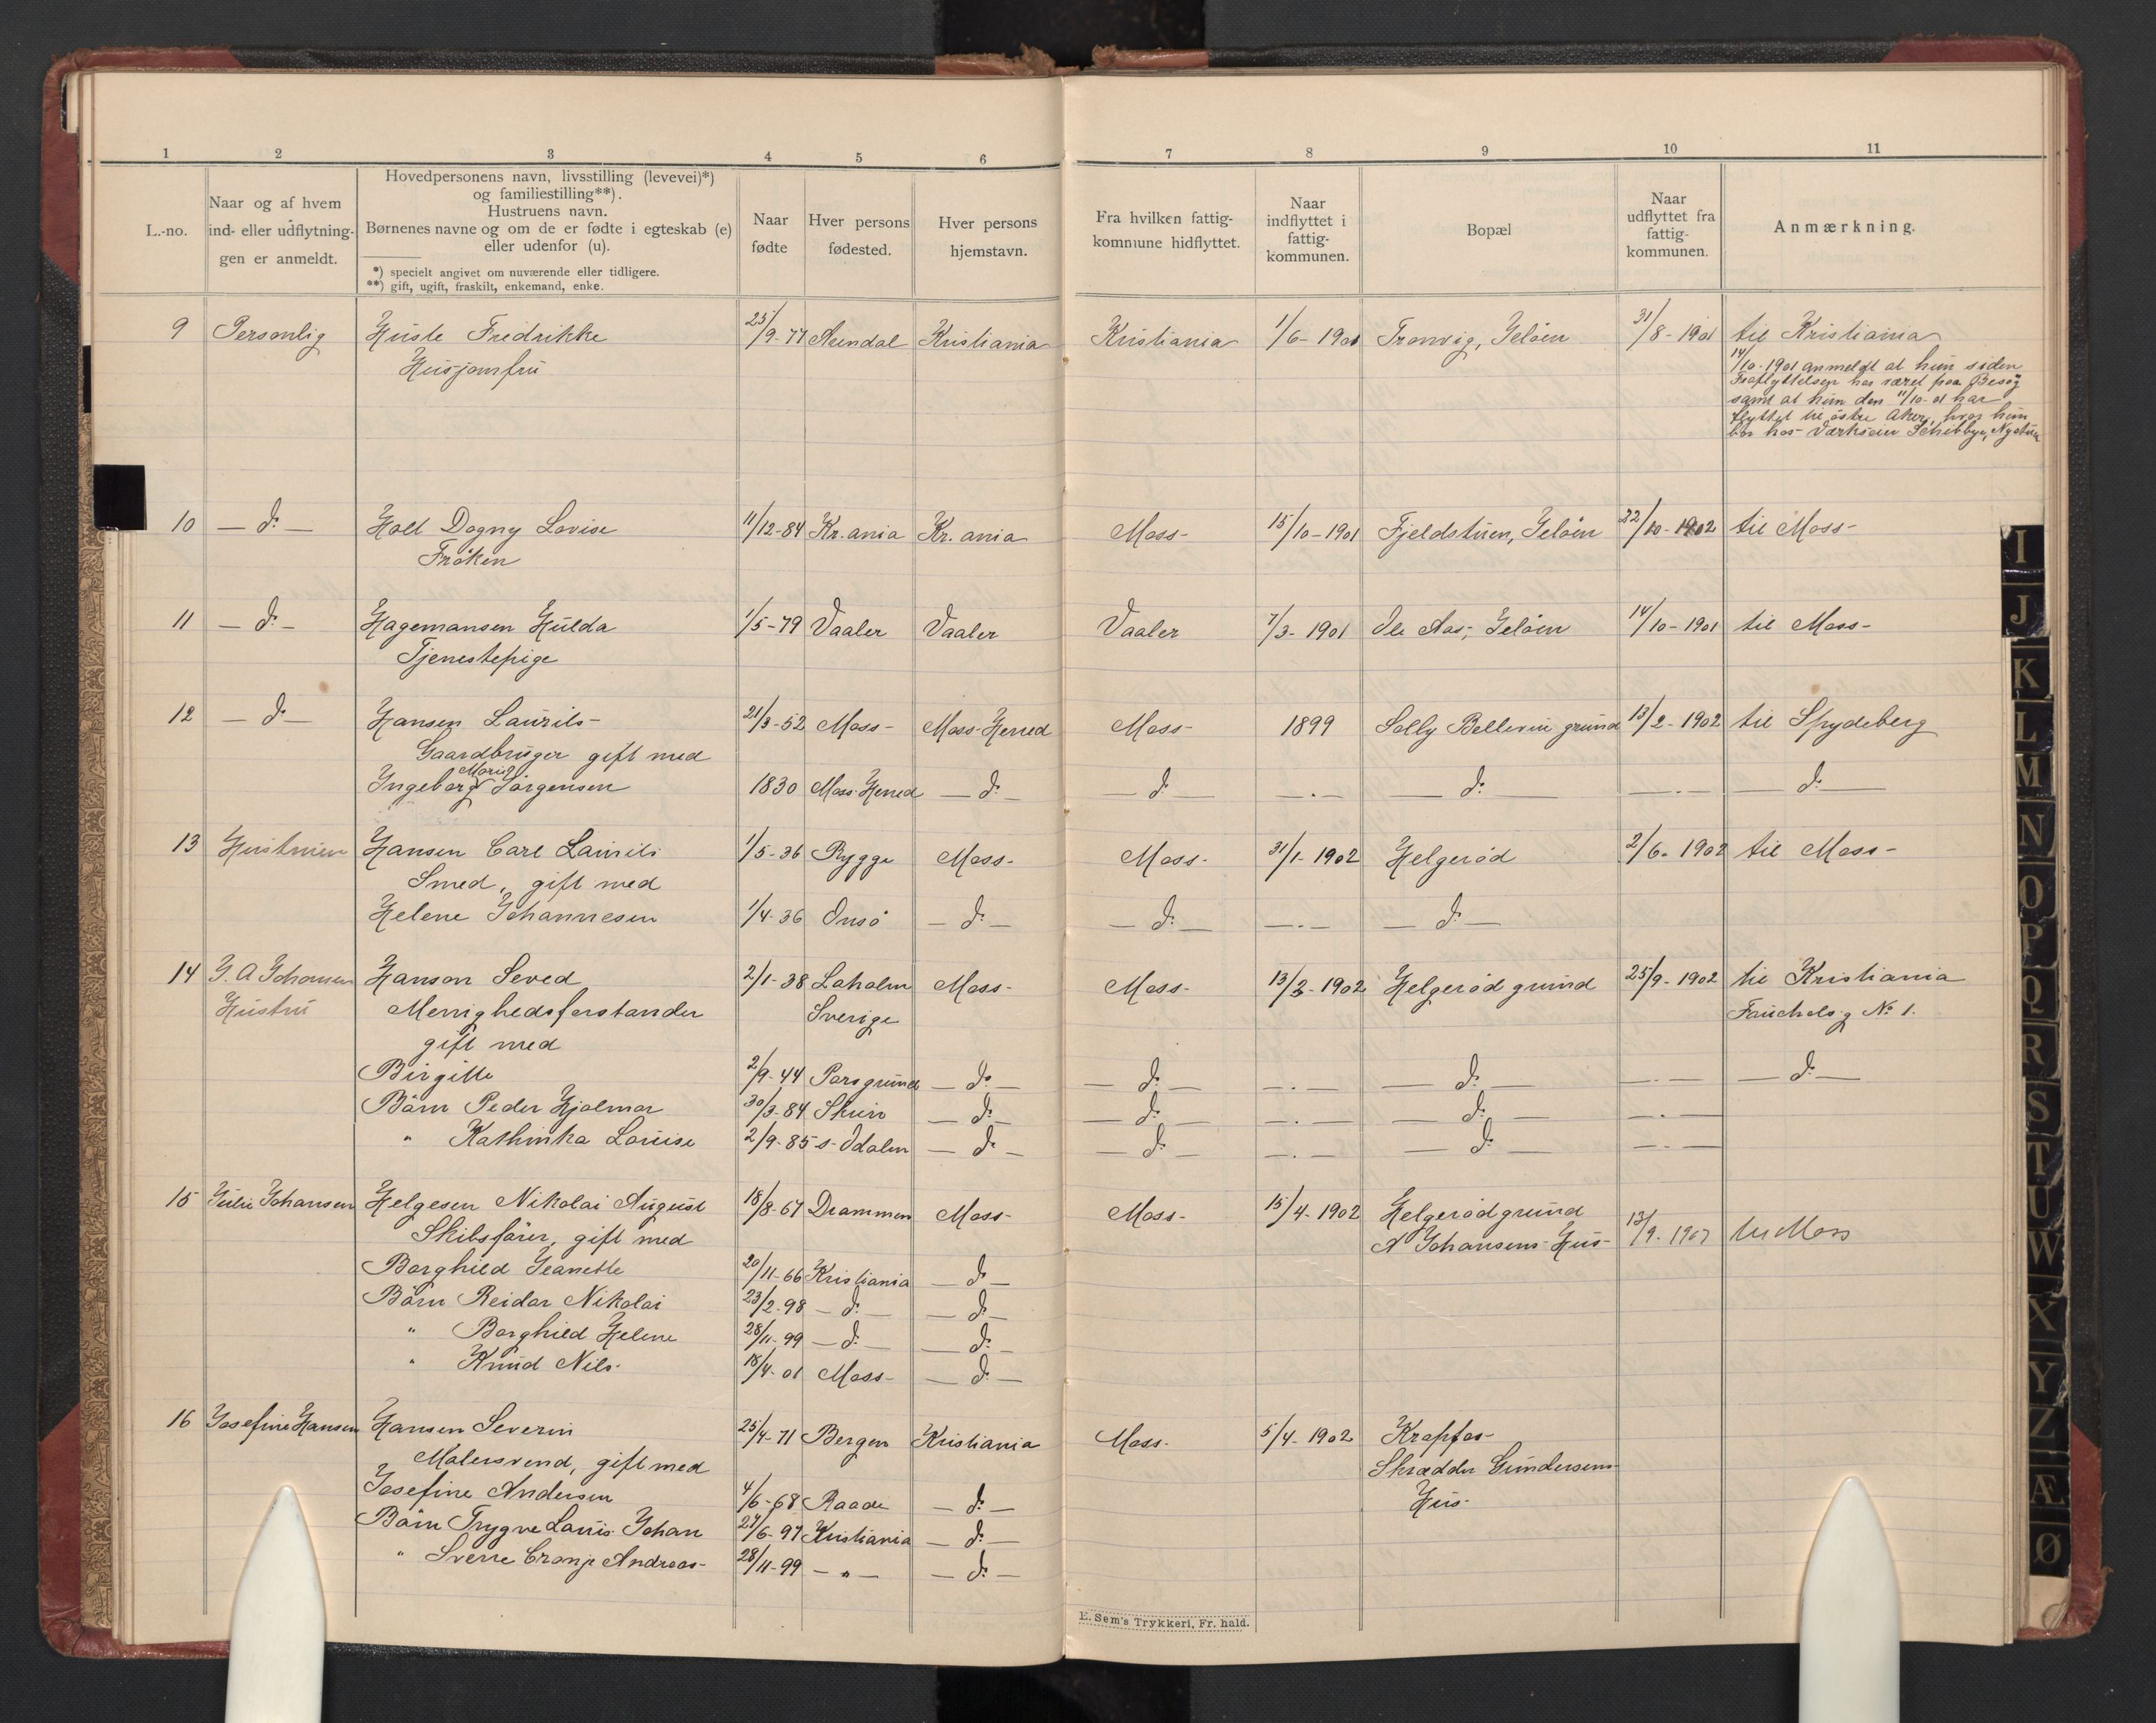 1 2 3 4 5 6 7 8 9 10 11
L.-no.
Naar og af hvem
ind- eller udflytnin-
gen er anmeldt.
Hovedpersonens navn, livsstilling (levevei)*)
og familiestilling**).
Hustruens navn.
Børnenes navne og om de er fødte i egteskab (e)
eller udenfor (u).
*) specielt angivet om nuværende eller tidligere.
**) gift, ugift, fraskilt, enkemand, enke.
Naar
fødte
Hver persons
fødested.
Hver persons
hjemstavn.
Fra hvilken fattig-
kommune hidflyttet.
Naar
indflyttet i
fattig-
kommunen.
Bopæl
Naar
udflyttet fra
fattig-
kommunen.
Anmærkning.
9 Personlig Huste Fredrikke 25/9-77 Arendal Kristiania Kristiania 1/6-1901 Tronvig, Jeløen 31/8-1901 til Kristiania
Husjomfru
14/10-1901 anmeldt at hun siden
Fraflyttelsen har været paa Besøg
samt at hun den 11/10-01 har
flyttet til østre Aker, hvor hun
bor hos Værkseier Schibbye,
10 — do — Holt Dagny Lovise 11/12-84 Kr.ania Kr.ania Moss- 15/10-1901 Fjeldstuen, Jeløen 22/10-1902 til Moss-
Frøken
11 — do — Hagemansen Hulda 1/5-79 Vaaler Vaaler Vaaler 7/3-1901 Ole Aas, Jeløen 14/10-1901 til Moss-
Tjenestepige
12 — do — Hansen Laurits- 21/3-52 Moss- Moss-Herred Moss- 1899 Solly Bellevue grund 13/2-1902 til Spydeberg
Gaardbruger gift med
Marie
Ingeborg Jørgensen 1830 Moss-Herred — do — — do — — . — — do — — . — — do —
13 Hustruen Hansen Carl Laurits 1/5-36 Rygge Moss- Moss- 31/1-1902 Helgerød 2/6-1902 til Moss-
Smed, gift med
Helene Johannesen 1/4-36 Onsø — do — — do — — . — — do —
14 J. A Johansen Hanson Seved 2/1-38 Laholm Moss- Moss- 13/3-1902 Helgerød grund 25/9-1902 til Kristiania
Hustru Menighedsforstander Sverige Fauchels g No 1.
gift med
Birgitte 2/9-44 Porsgrund — do — — do — — . — — do — — . — — do —
Børn Peder Hjalmar 30/3-84 Skien — do — — do — — . — — do — — . —
" Kathinka Louise 2/9-85 s-Odalen — do — — do — — . — — do — — . —
15 Julie Johansen Helgesen Nikolai August 18/8-67 Drammen Moss- Moss- 15/4-1902 Helgerødgrund
Skibsfører, gift med A Johansens Hus- 13/9-1907 til Moss
Borghild Jeanette 20/11-66 Kristiania — do —
Børn Reidar Nikolai 23/2-98 — do — — do —
" Borghild Helene 28/11-99 — do — — do —
" Knud Nils- 18/4-01 Moss- — do —
16 Josefine Hansen Hansen Severin 25/4-71 Bergen Kristiania Moss- 5/4-1902 Krapfos-
Malersvend, gift med Skrædder Gundersens
Josefine Andersen 4/6-68 Raade — do — Hus-
Børn Trygve Louis Johan 27/6-97 Kristiania — do —
" Sverre Cronje Andreas- 28/11-99 — " — — do —
E. Sem's Trykkeri, Fr. hald.
I
J
K
L
M
N
O
P
Q
R
S
T
U
W
X
Y
Z
Æ
Ø